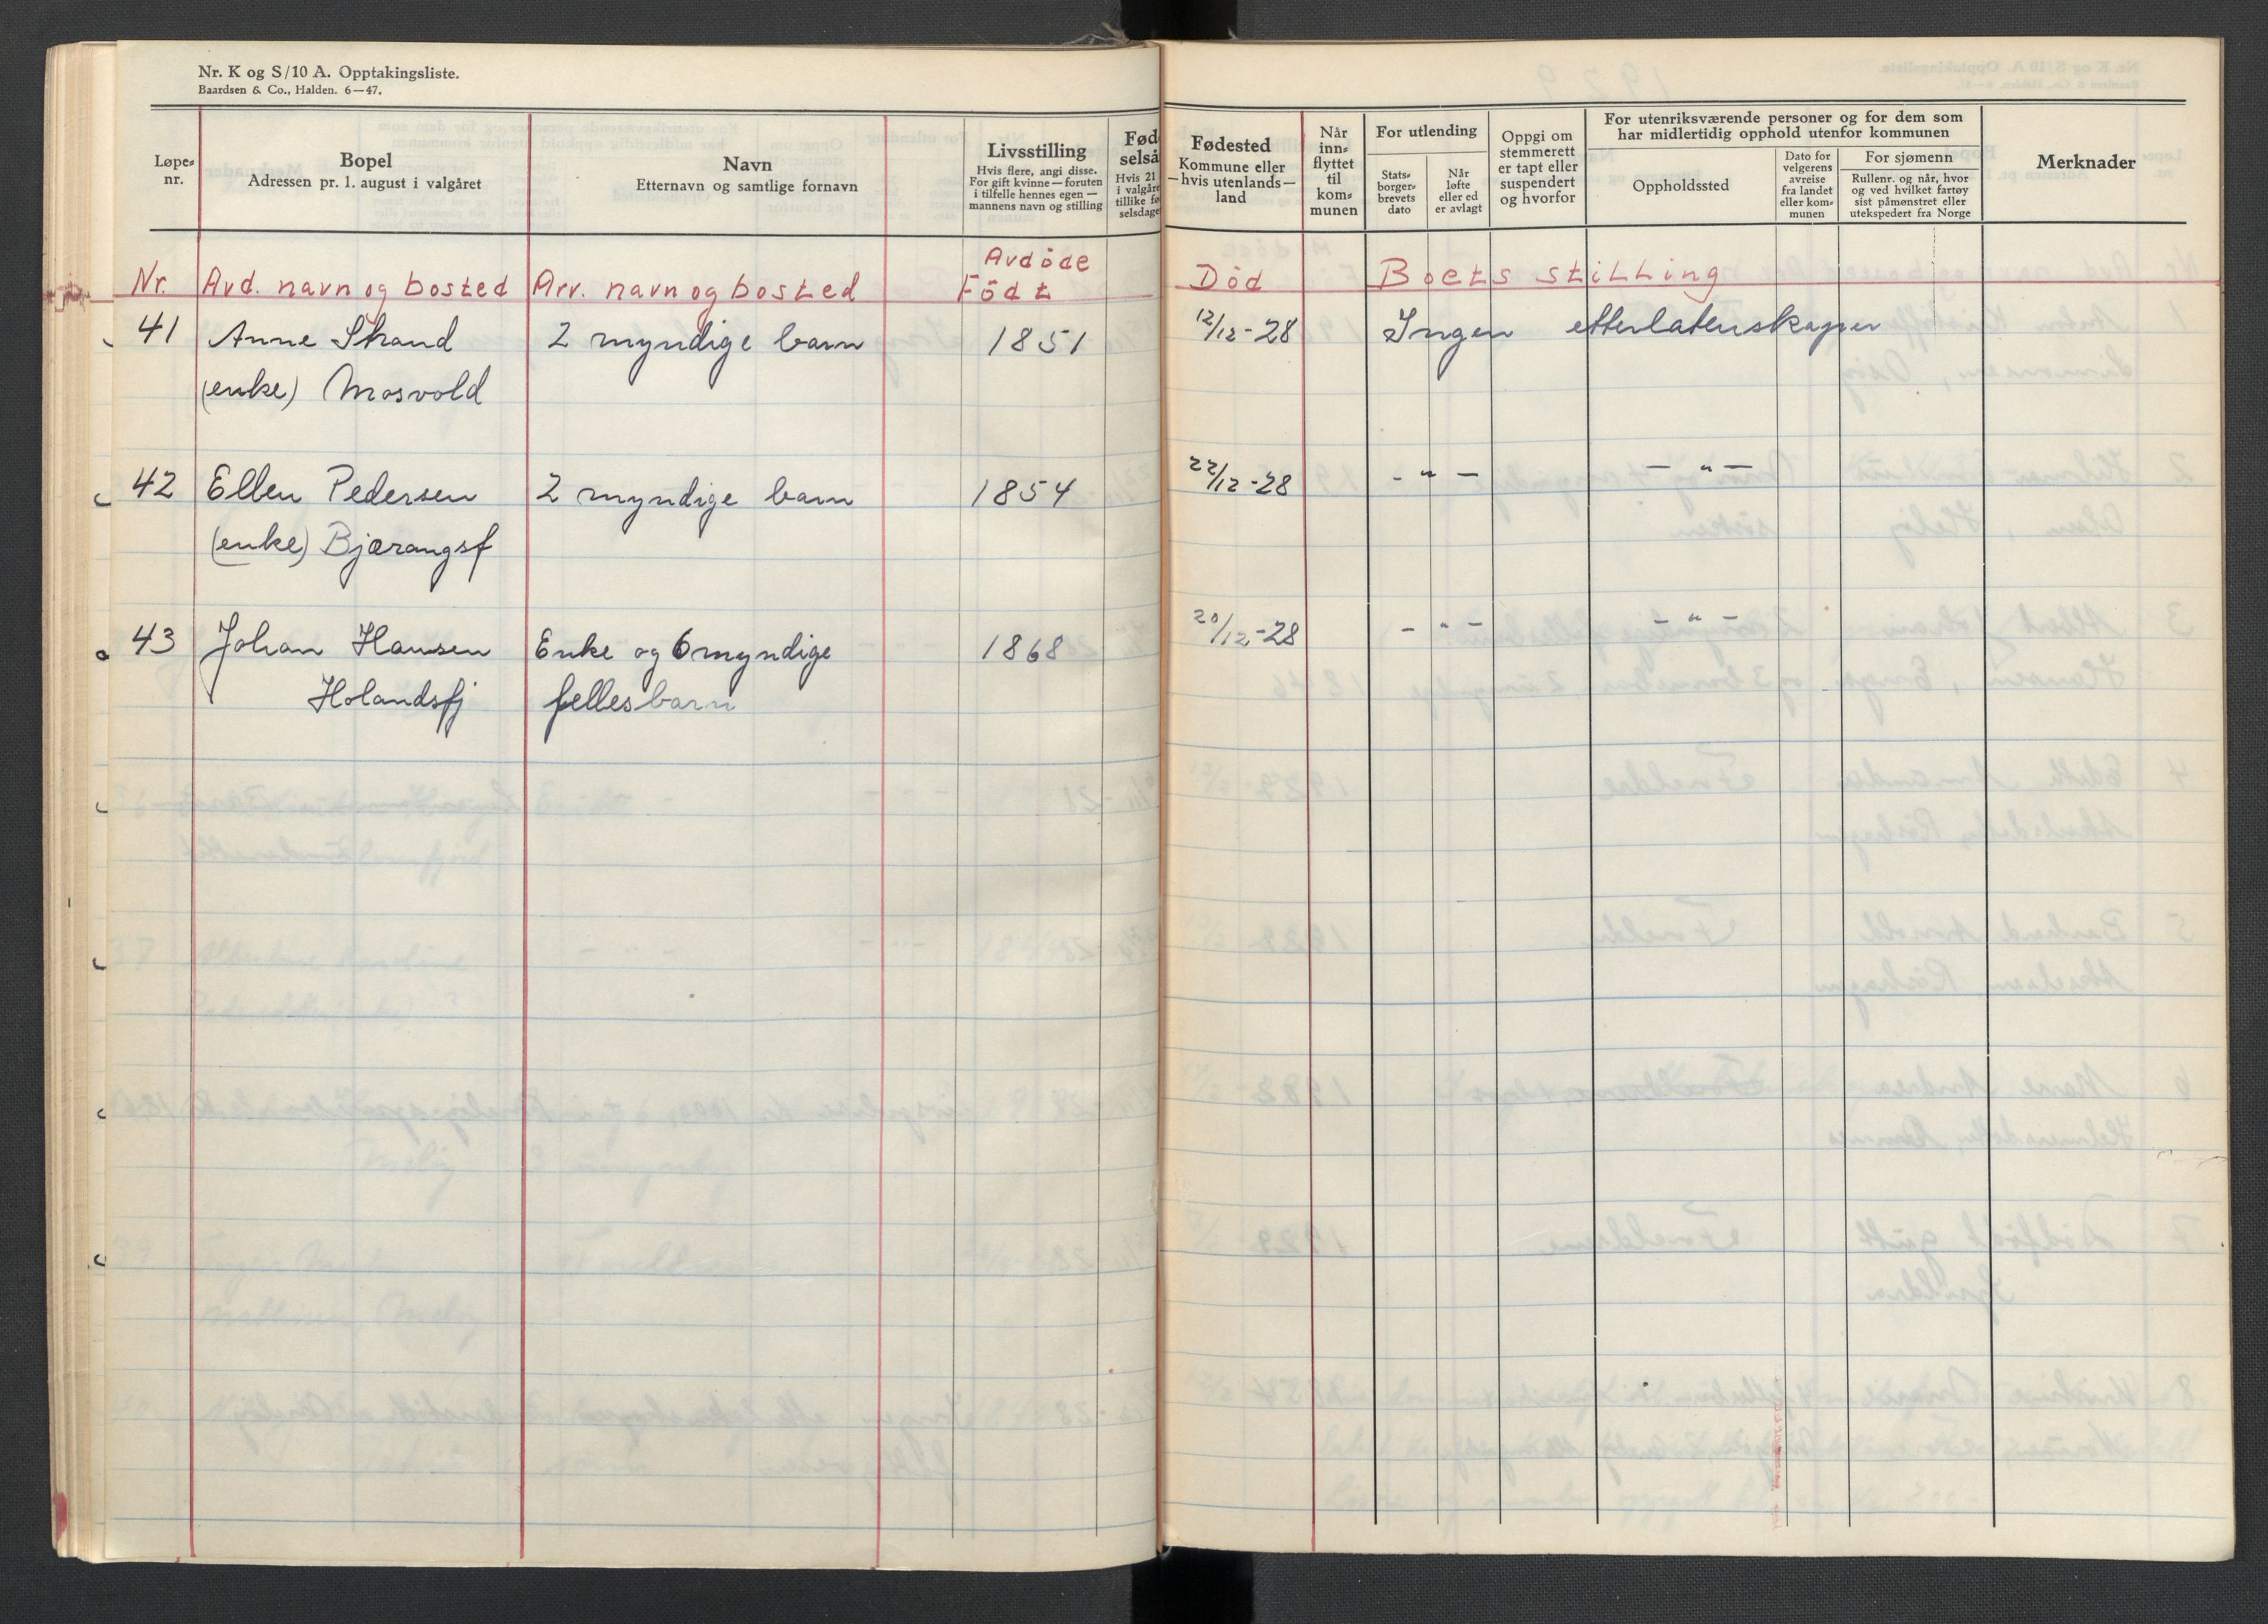 Nr. K og S/10 A. Opptakingsliste.
Baardsen & Co., Halden. 6—47.
Løpe-
nr.
Bopel
Adressen pr. 1. august i valgåret
Navn
Etternavn og samtlige fornavn
Livsstilling
Hvis flere, angi disse.
For gift kvinne — foruten
i tilfelle hennes egen —
mannens navn og stilling
Fød
selså
Hvis 21
i valgåre
tillike fø
selsdage
Fødested
Kommune eller
—hvis utenlands—
land
Når
inn-
flyttet
til
kom-
munen
For utlending
Stats-
borger-
brevets
dato
Når
løfte
eller ed
er avlagt
Oppgi om
stemmerett
er tapt eller
suspendert
og hvorfor
For utenriksværende personer og for dem som
har midlertidig opphold utenfor kommunen
Oppholdssted
Dato for
velgerens
avreise
fra landet
eller kom-
munen
For sjømenn
Rullenr. og når, hvor
og ved hvilket fartøy
sist påmønstret eller
utekspedert fra Norge
Merknader
Nr. Avd. navn og bosted Arv. navn og bosted Avdöde Födt Död Boets stilling
41 Anne Strand 2 myndige barn 1851 12/12-28 Ingen etterlatenskaper
(enke) Mosvold
42 Ellen Pedersen 2 myndige barn 1854 22/12-28 - " - - " -
(enke) Bjærangsf
43 Johan Hansen Enke og 6 myndige 1868 20/12-28 - " - - " -
Holandsfj fellesbarn